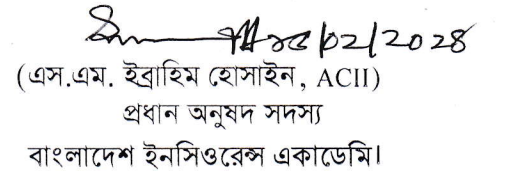 ২৫/০২/২০২৪
(এস.এম. ইব্রাহিম হোসাইন, ACII)
প্রধান অনুষদ সদস্য
বাংলাদেশ ইনসিওরেন্স একাডেমি।